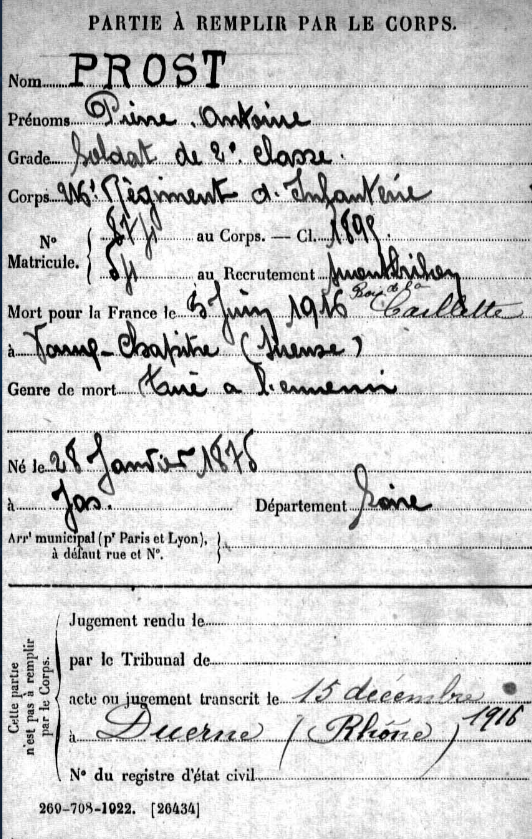 PARTIE À REMPLIR PAR LE CORPS.
Nom PROST
Prénoms Pierre Antoine
Grade Soldat de 2e classe.
Corps 216e Régiment d'Infanterie
N° Matricule. { 8714 au Corps. — Cl. 1895
54 au Recrutement Montbrison
Bois de la
Mort pour la France le 3 Juin 1916 Caillette
à Vaux-Chapitre (Meuse)
Genre de mort Tué a l'ennemi
Né le 28 Janvier 1875
à Jas. Département Loire
Arrt municipal (pr Paris et Lyon),
à défaut rue et N°.
Jugement rendu le
par le Tribunal de
acte ou jugement transcrit le 15 décembre 1916
à Duerne (Rhône)
N° du registre d'état civil
Cette partie
n'est pas à remplir
par le Corps.
269-708-1922. [26434]